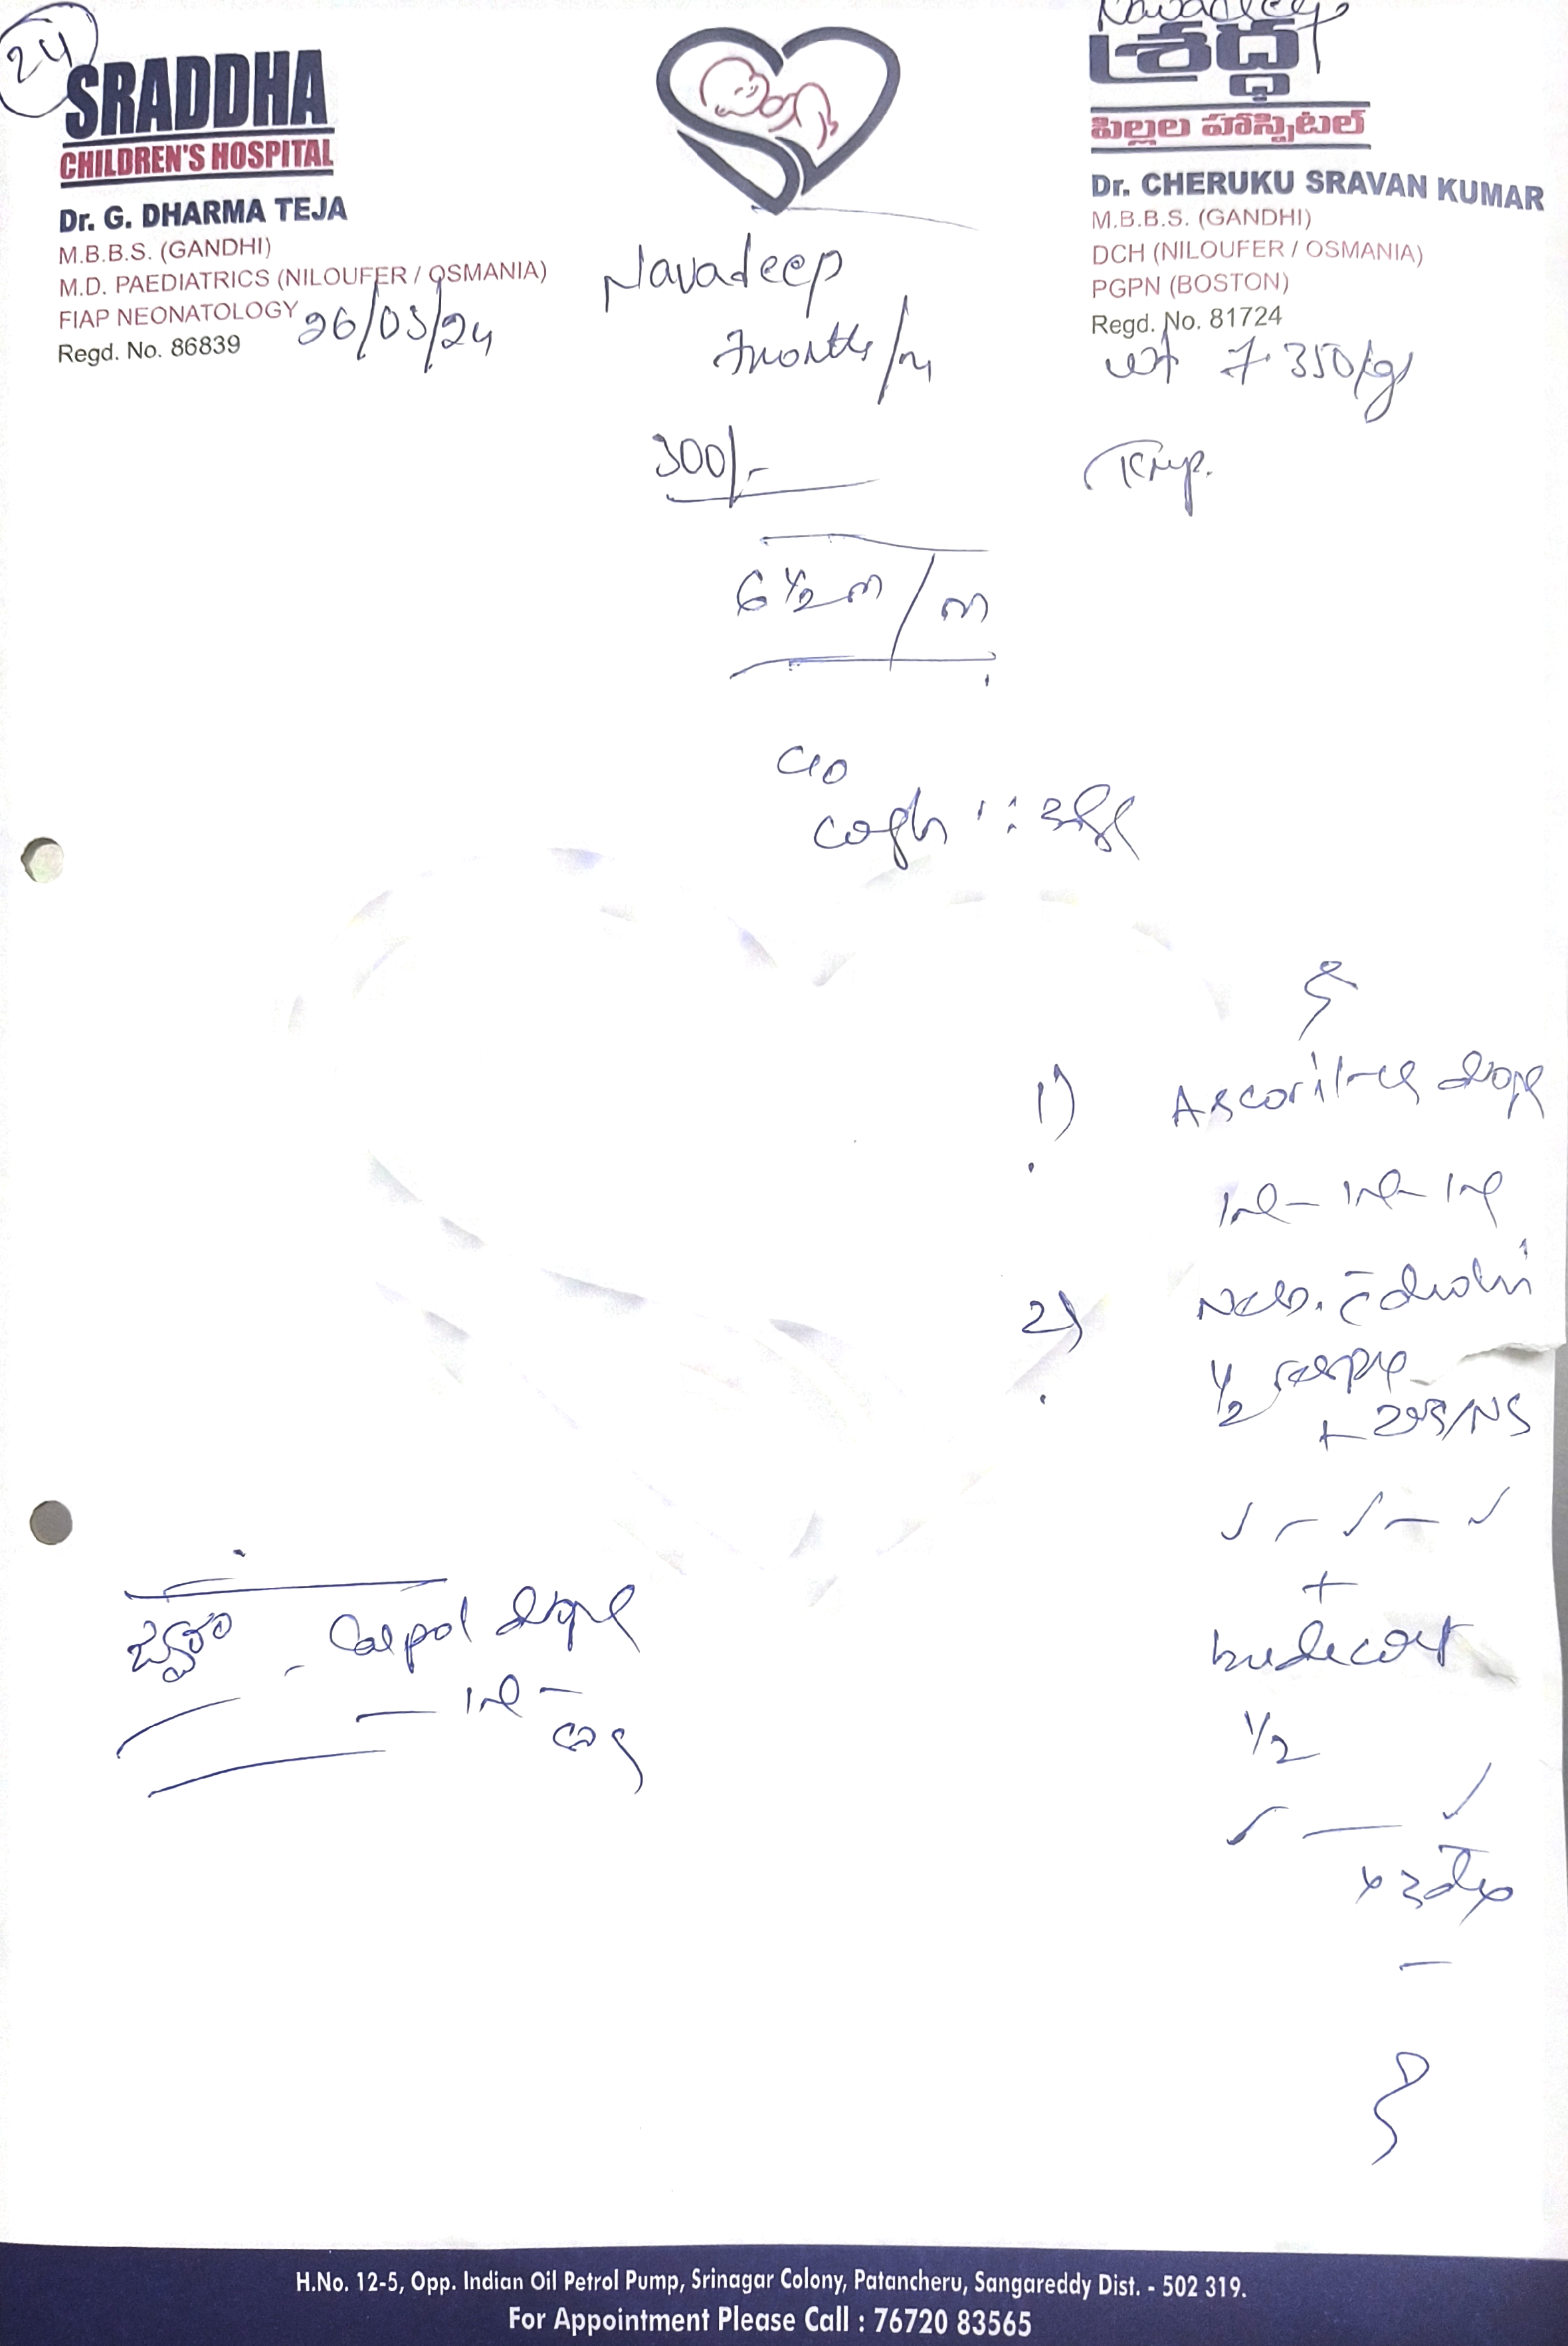 24
SRADDHA
CHILDREN'S HOSPITAL
Dr. G. DHARMA TEJA
M.B.B.S. (GANDHI)
M.D. PAEDIATRICS (NILOUFER / OSMANIA)
FIAP NEONATOLOGY
Regd. No. 86839
26/03/24
Navadeep
7months/m
300/-
Navadeep
శ్రద్ధ
పిల్లల హాస్పిటల్
Dr. CHERUKU SRAVAN KUMAR
M.B.B.S. (GANDHI)
DCH (NILOUFER / OSMANIA)
PGPN (BOSTON)
Regd. No. 81724
wt 7.350kgs
Temp.
6 1/2 m / m
c/o
cough
1) Ascoril-LS drops
1ml - 1ml - 1ml
2) Neb. c̄
1/2 respule
+ 2ml/NS
✓ - ✓ - ✓
+
budecort
1/2
✓ — ✓
x 3 days
జ్వరం - Calpol drops
— 1ml -
H.No. 12-5, Opp. Indian Oil Petrol Pump, Srinagar Colony, Patancheru, Sangareddy Dist. - 502 319.
For Appointment Please Call : 76720 83565